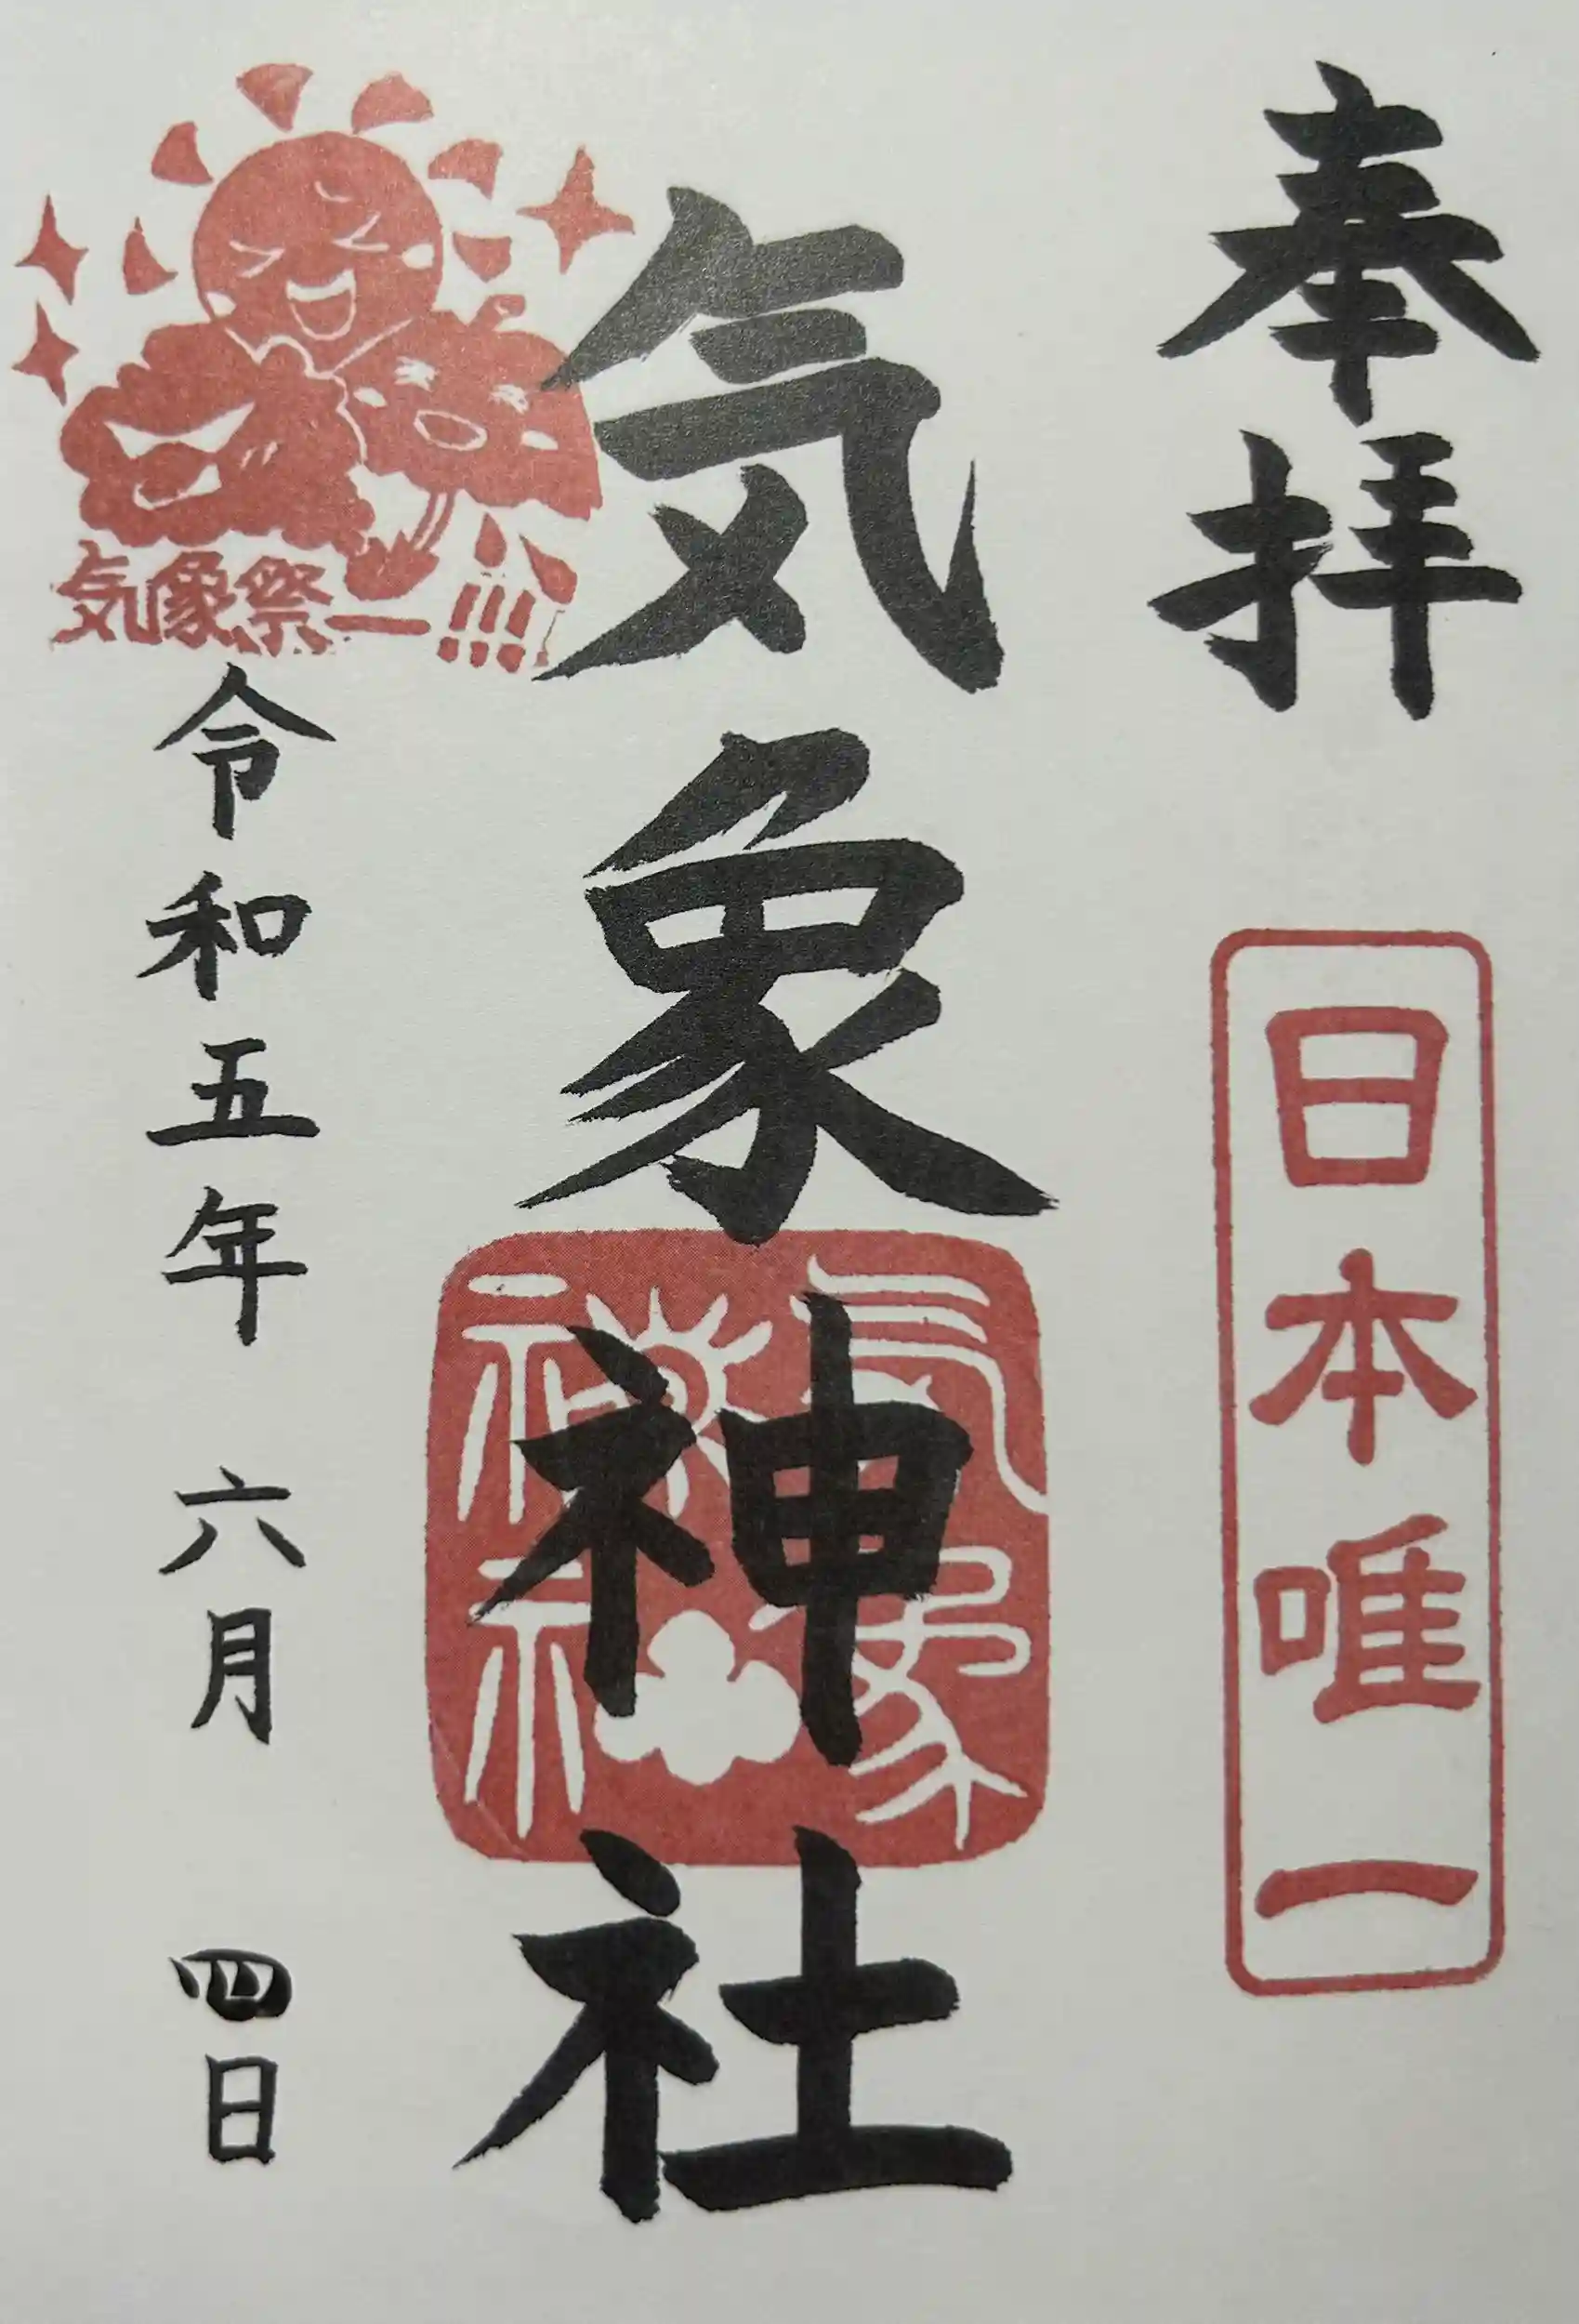 奉拝
日本唯一
気象神社
気象神社
気象祭ー!!!
令和五年 六月 四日